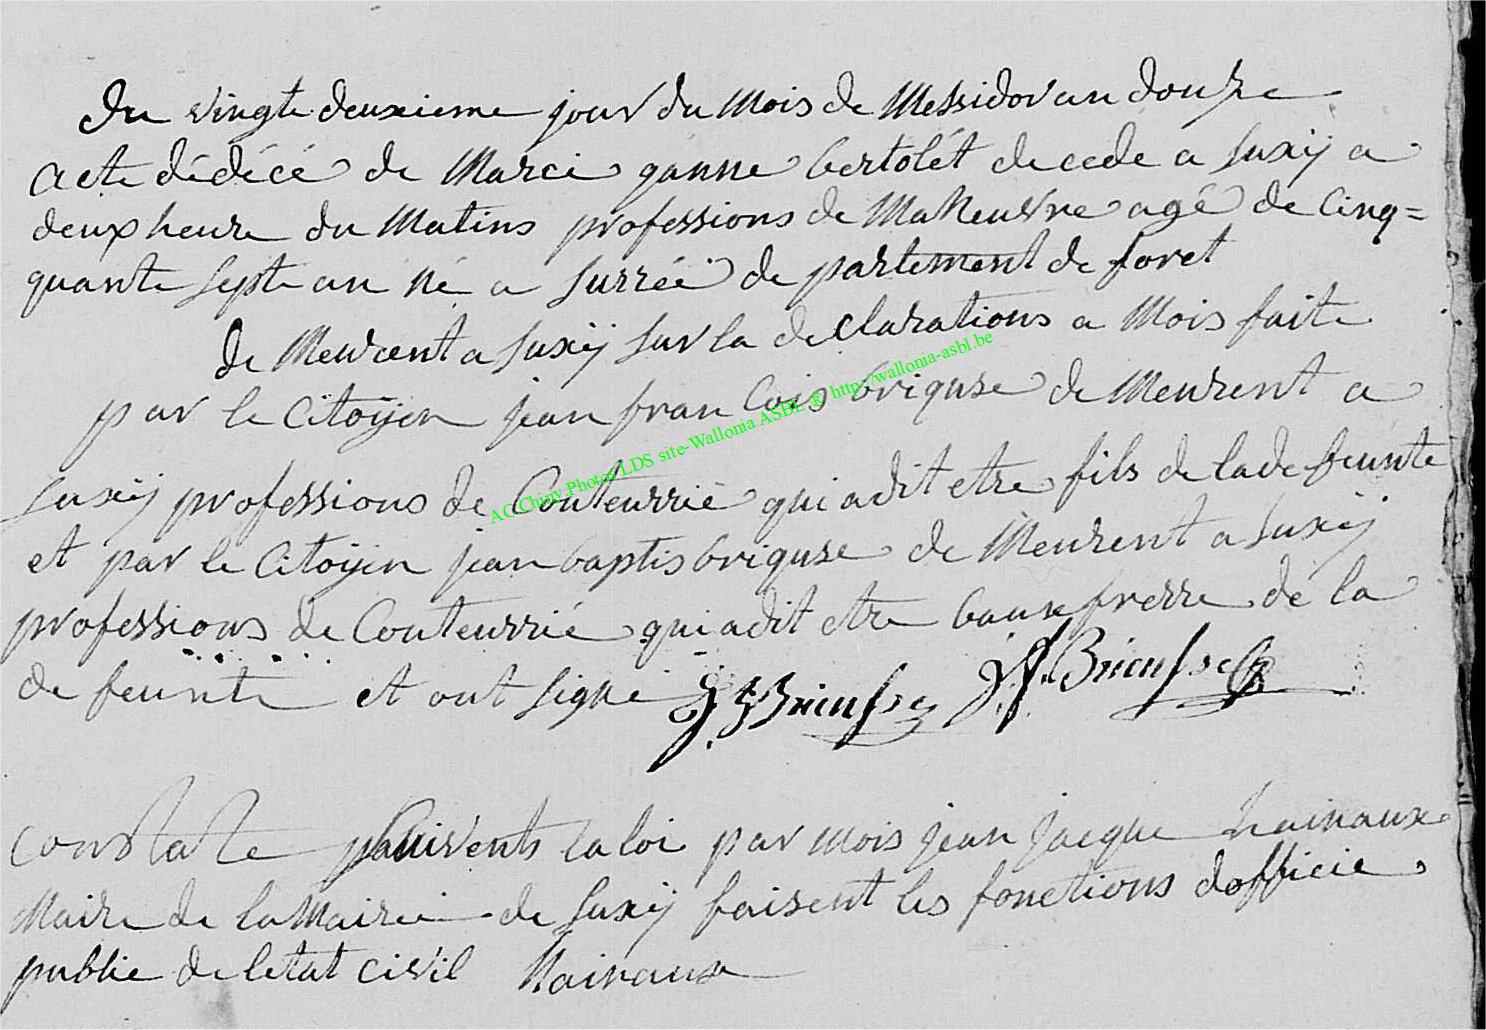 du vingte deuxieme jour du Mois de Messidor an douze
acte dédécé de Marei ganne bertolét decede a Suxÿ a
deux heure du Matins professions de Maneuvre agé de Cinq=
quante septe an né a surréé de partement de foret
de Meurent a Suxÿ sur la declarations a Mois faite
par le Citoÿen jean francois briquse de Meurent a
Suxÿ professions de Couteurrié qui a dit etre fils de la de feunte
et par le Citoÿen jean baptis briquse de Meurent a Suxÿ
professions de Couteurrié qui a dit etre baux frerre de la
de feunte et ont signé J B Brieusse J. f. Brieusse
AC Chiny Photos LDS site-Wallonia ASBL ® http://wallonia-asbl.be
Constate suivents la loi par Mois jean jacque hainaux
Maire de la Mairie de Suxÿ faisent les fonctions dofficie
public de letat civil hainaux